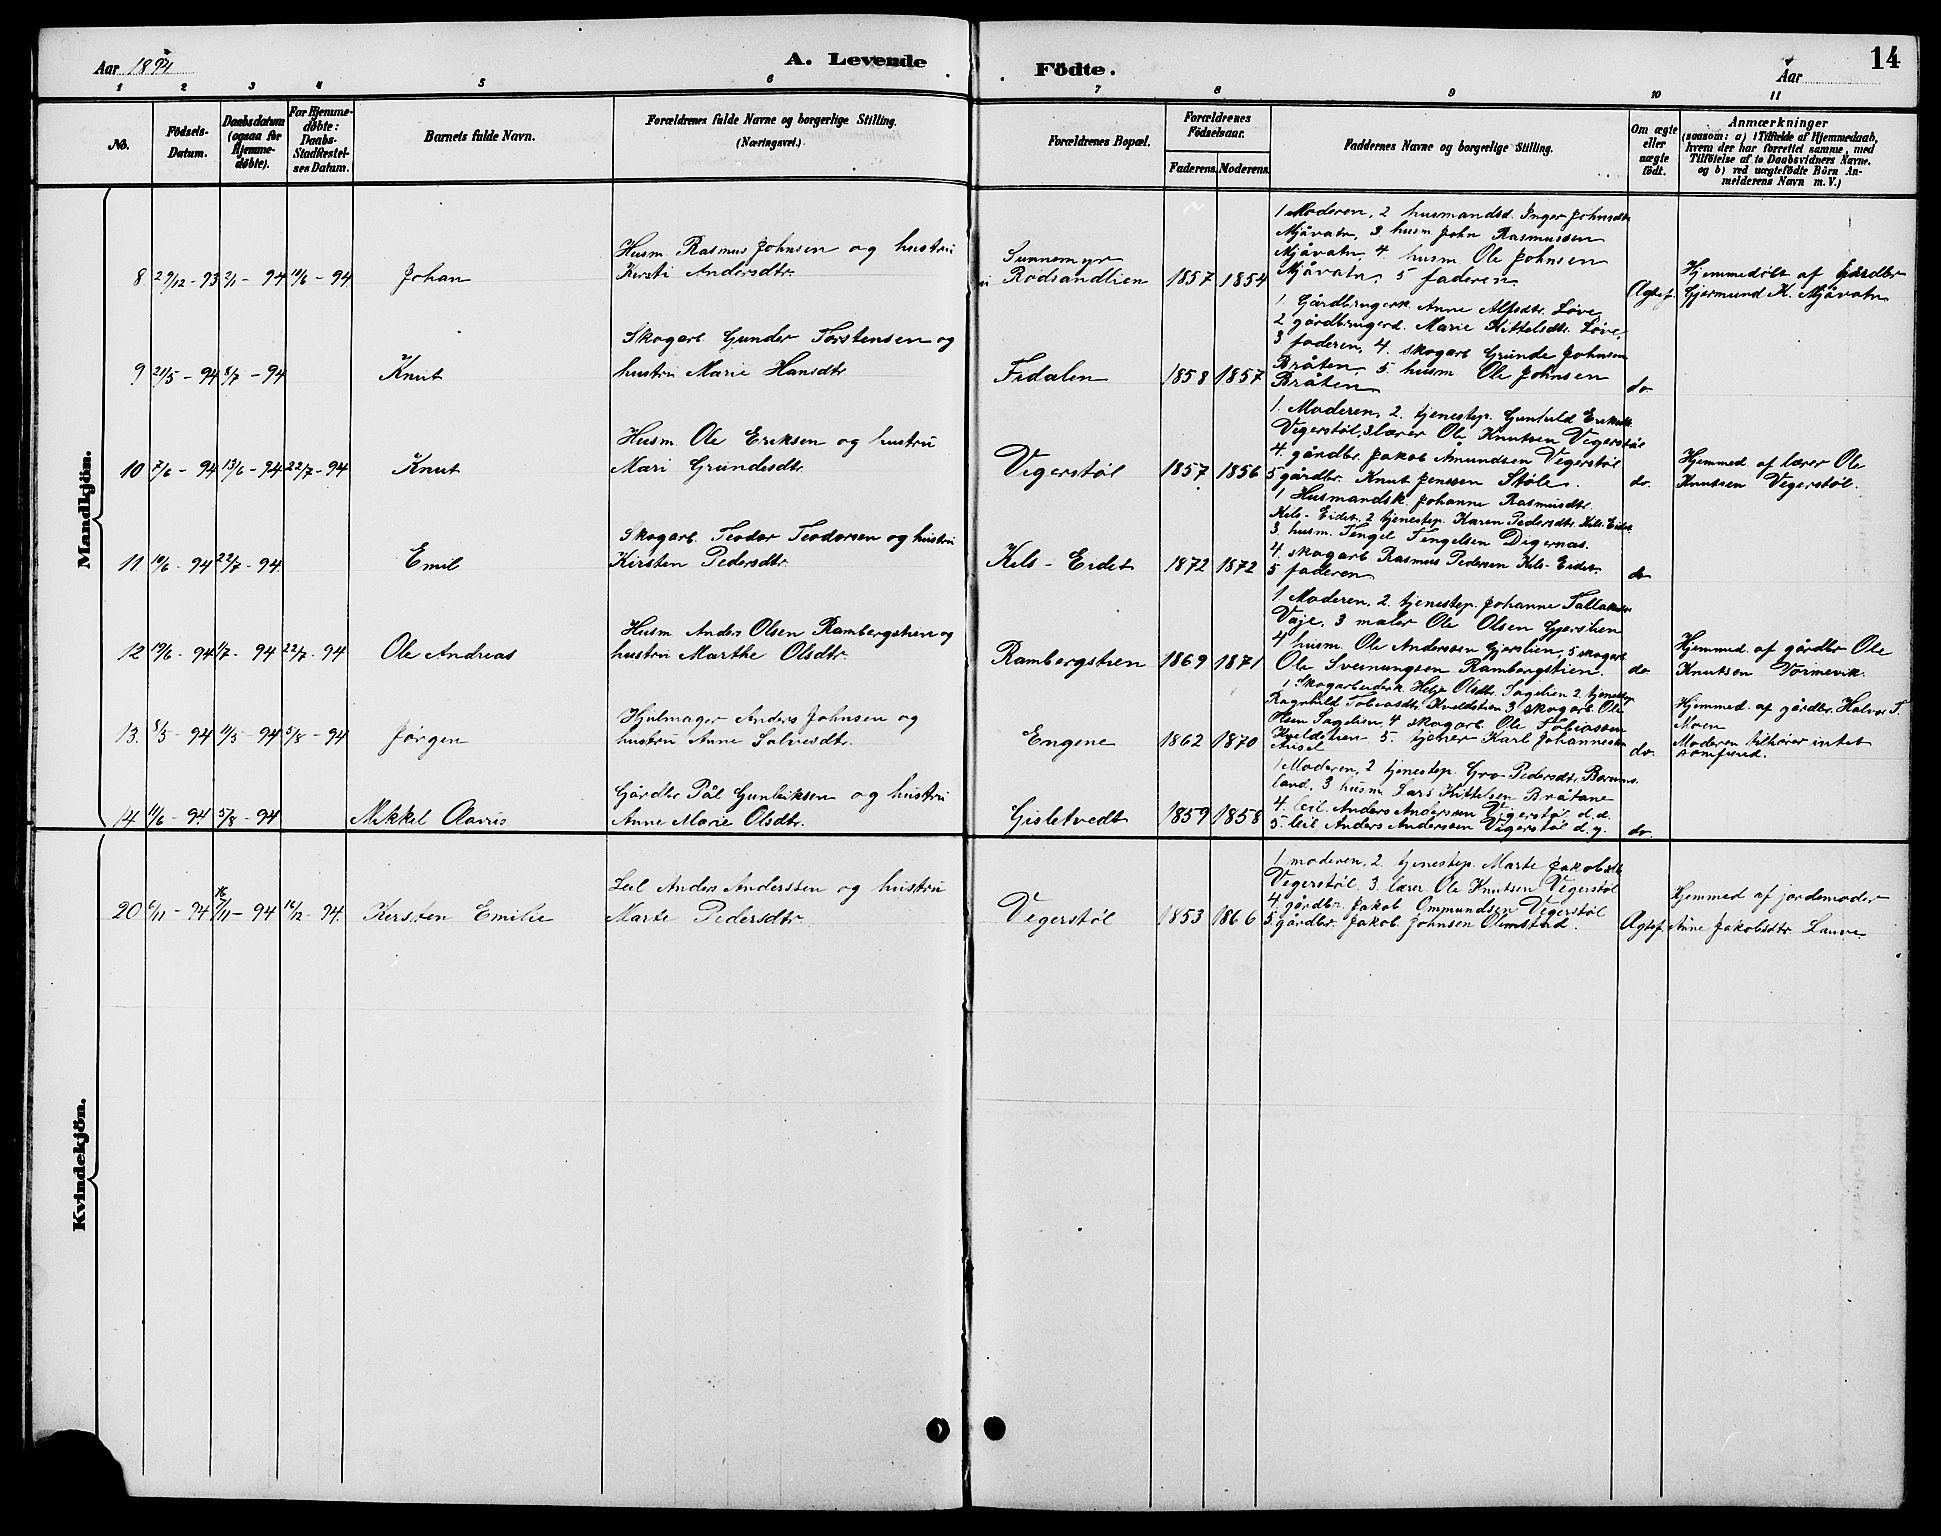 Aar 1894
A. Levende
Födte.
Aar
14
1 2 3 4 5 6 7 8 9 10 11
No.
Födsels-
Datum.
Daabsdatum
(ogsaa for
Hjemme-
døbte).
For Hjemme-
døbte:
Daabs-
Stadfæstel-
ses Datum.
Barnets fulde Navn.
Forældrenes fulde Navne og borgerlige Stilling.
(Næringsvei.)
Forældrenes Bopæl.
Forældrenes
Födselsaar.
Faderens. Moderens.
Faddernes Navne og borgerlige Stilling.
Om ægte
eller
uægte
födt.
Anmærkninger
(saasom: a) i Tilfælde af Hjemmedaab,
hvem der har forrettet samme, med
Tilföielse af to Daabsvidners Navne,
og b) ved uægtefödte Börn An-
melderens Navn m. V.)
Mandkjön.
8 29/12 - 93 2/1 - 94 10/6 - 94 Johan
Husm Rasmus Johnsen og hustru
Kirsti Andersdtr.
Sunnemyr
Rodsandlien 1857 1854
1 Moderen, 2 husmandsd. Inger Johnsdtr
Mjåvatn, 3 husm John Rasmussen
Mjåvatn, 4. husm. Ole Johnsen
Mjåvatn, 5 faderen.
Ægtef.
Hjemmedøbt af Gårdbr
Gjermund K. Mjåvatn
9 21/5 - 94 8/7 - 94 Knut
Skogarb. Gunder Torstensen og
hustru Marie Hansdtr
Fidalen 1858 1857
1. Gårdbrugerk. Anne Alfsdtr. Løve,
2 gårdbrugerd. Marie Kittelsdtr. Løve,
3 faderen, 4. skogarb Grunde Johnsen
Bråten, 5. husm Ole Johnsen
Bråten
do
10 7/6 - 94 13/6 - 94 22/7 - 94 Knut
Husm Ole Eriksen og hustru
Mari Grundesdtr.
Vegerstøl 1857 1856
1. Moderen, 2. tjenestep. Gunhild Eriksdtr
Vegerstøl, 3 lærer Ole Knutsen Vegerstøl
4. gårdbr. Jakob Amundsen Vegerstøl
5 gårdbr. Knut Jenssen Støle.
do.
Hjemmed af lærer Ole
Knutsen Vegerstøl.
11 10/6 - 94 22/7 - 94. Emil
Skogarb. Teodor Teodorsen og hustru
Kirsten Pedersdtr.
Kils - Eidet 1872 1872
1 Husmandsk Johanne Rasmusdtr.
Kils - Eidet, 2 tjenestep. Karen Pedersdtr. Kils-Eidet.
3. husm. Tengel Tengelsen Digernas.
4. skogarb Rasmus Pedersen Kils-Eidet.
5 faderen
do
12 19/6 - 94 1/7 - 94 22/7 - 94 Ole Andreas
Husm Anders Olsen Rambergstien og
hustru Marthe Olsdtr.
Rambergstien 1869 1871
1. Moderen, 2. tjenestep. Johanne Tallaksdtr
Vaje, 3 maler Ole Olsen Gjerstien
4 husm. Ole Anderssen Gjerstien, 5 skogarb
Ole Sveinungsen Rambergstien.
do
Hjemmed af gårdbr Ole
Knutsen Vormevik.
13. 8/5 - 94 11/5 - 94 5/8 - 94 Jørgen
Hjulmager Anders Johnsen og
hustru Anne Salvesdtr.
Engene 1862 1870
1 Skogarbeiderk. Helje Olsdtr. Sagelien 2. tjenestep
Ragnhild Tobiasdtr. Kveldstien 3 skogarb. Ole
Olsen Sagelien, 4 skogarb Ole Tobiassen
Kveldstien 5. tjener Karl Johannesen
do.
Hjemmed af gårdbr. Halvor T.
Moen
Moderen tilhører intet
samfund.
14 11/6 - 94. 5/8 - 94 Mikkel
Gårdbr Pål Gunleiksen og hustru
Anne Marie Olsdtr.
Gisletvedt 1859 1858
1 Moderen, 2 tjenestep. Gro Pedersdtr. Borums-
land, 3 husm. Lars Kittelsen Bråtane
4. leil. Anders Anderssen Vegerstøl d.æ.
5. leil Anders Anderssen Vegerstøl d.y.
do.
Kvindekjön.
20 6/11 - 94 16/11 - 94 16/12 - 94. Kirsten Emilie
Leil Anders Anderssen og hustru
Marte Pedersdtr.
Vegerstøl 1853 1866
1 moderen, 2. tjenestep. Marte Jakobsdtr
Vegerstøl, 3. lærer Ole Knutsen Vegerstøl
4. gårdbr. Jakob Ommundsen Vegerstøl
5. gårdbr. Jakob Johnsen Olimstad.
Ægtef.
Hjemmed af jordemoder
Anne Jakobsdtr. Lauve.